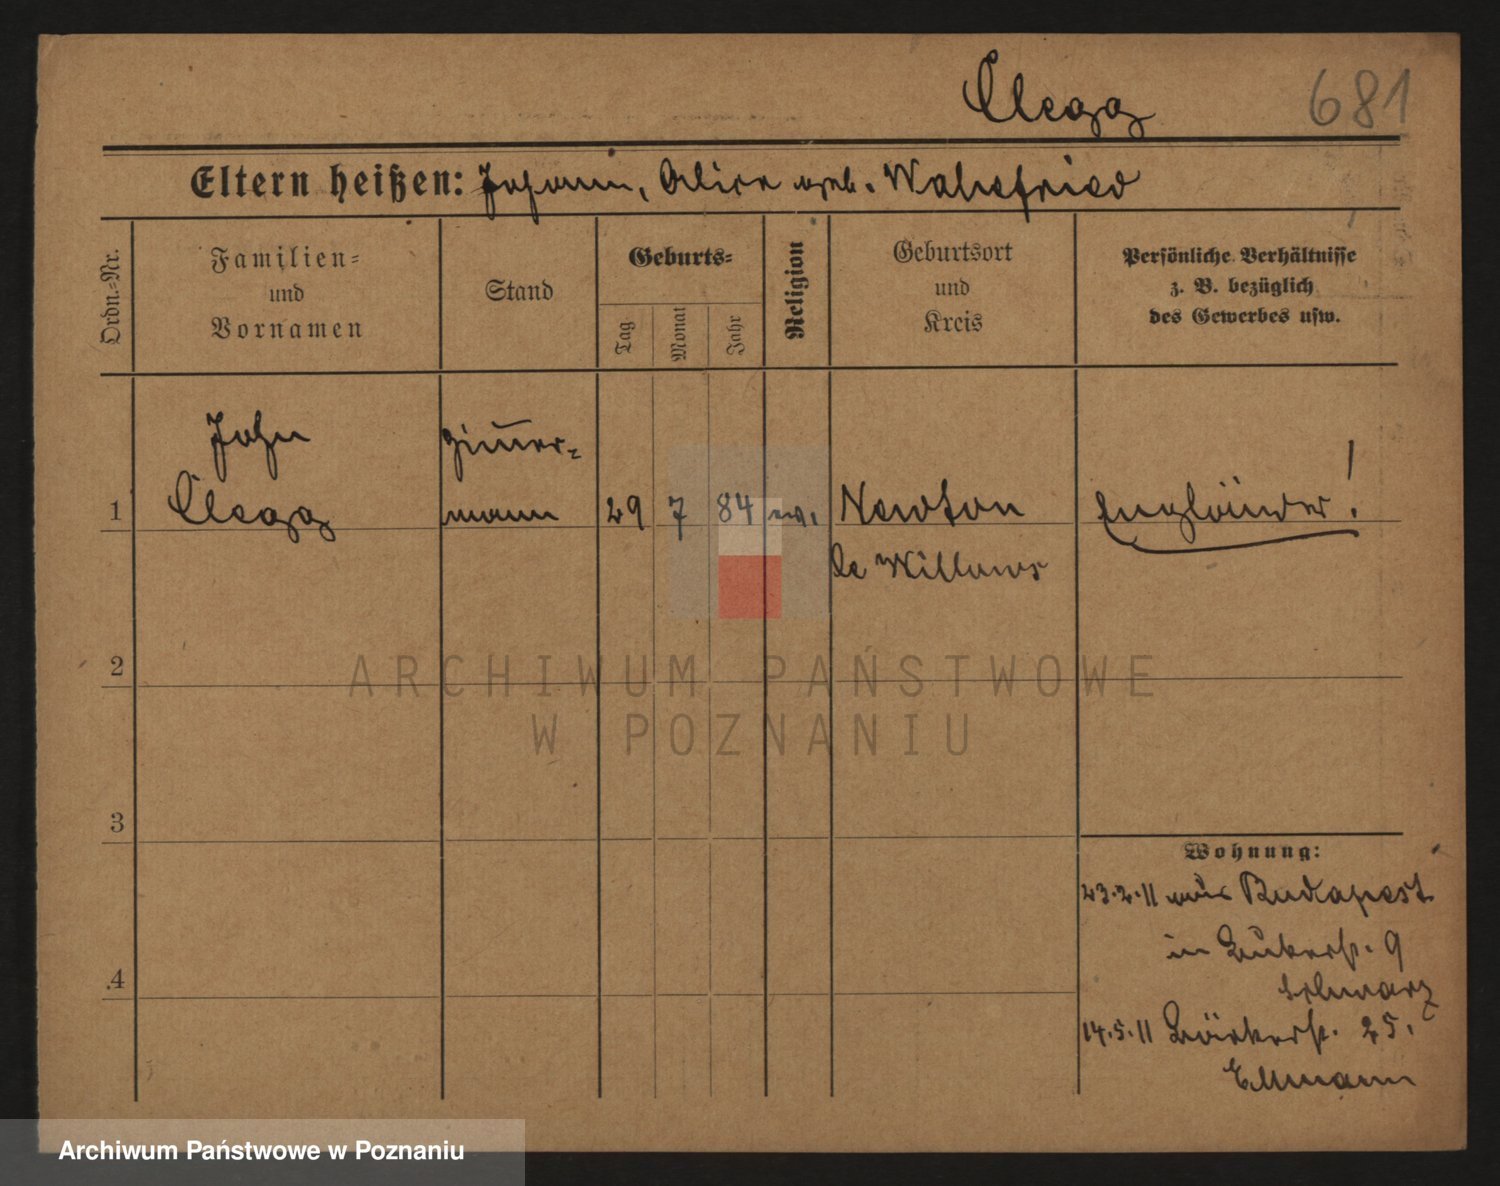 Clegg 681
Eltern heißen: Johann, Alice geb. Walsefried
Ordn.-Nr.
Familien-
und
Vornamen
Stand
Geburts-
Tag
Monat
Jahr
Religion
Geburtsort
und
Kreis
Persönliche Verhältnisse
z. B. bezüglich
des Gewerbes usw.
John zimer-
1 Clegg mann 29 7 84 ev. Newton Engländer!
le Willows
2
3
4
ARCHIWUM PAŃSTWOWE
W POZNANIU
Wohnung:
23.2.11 aus Budapest
in 9
Schwarz
14.5.11 Bäckerst. 25.
Ellmann
Archiwum Państwowe w Poznaniu